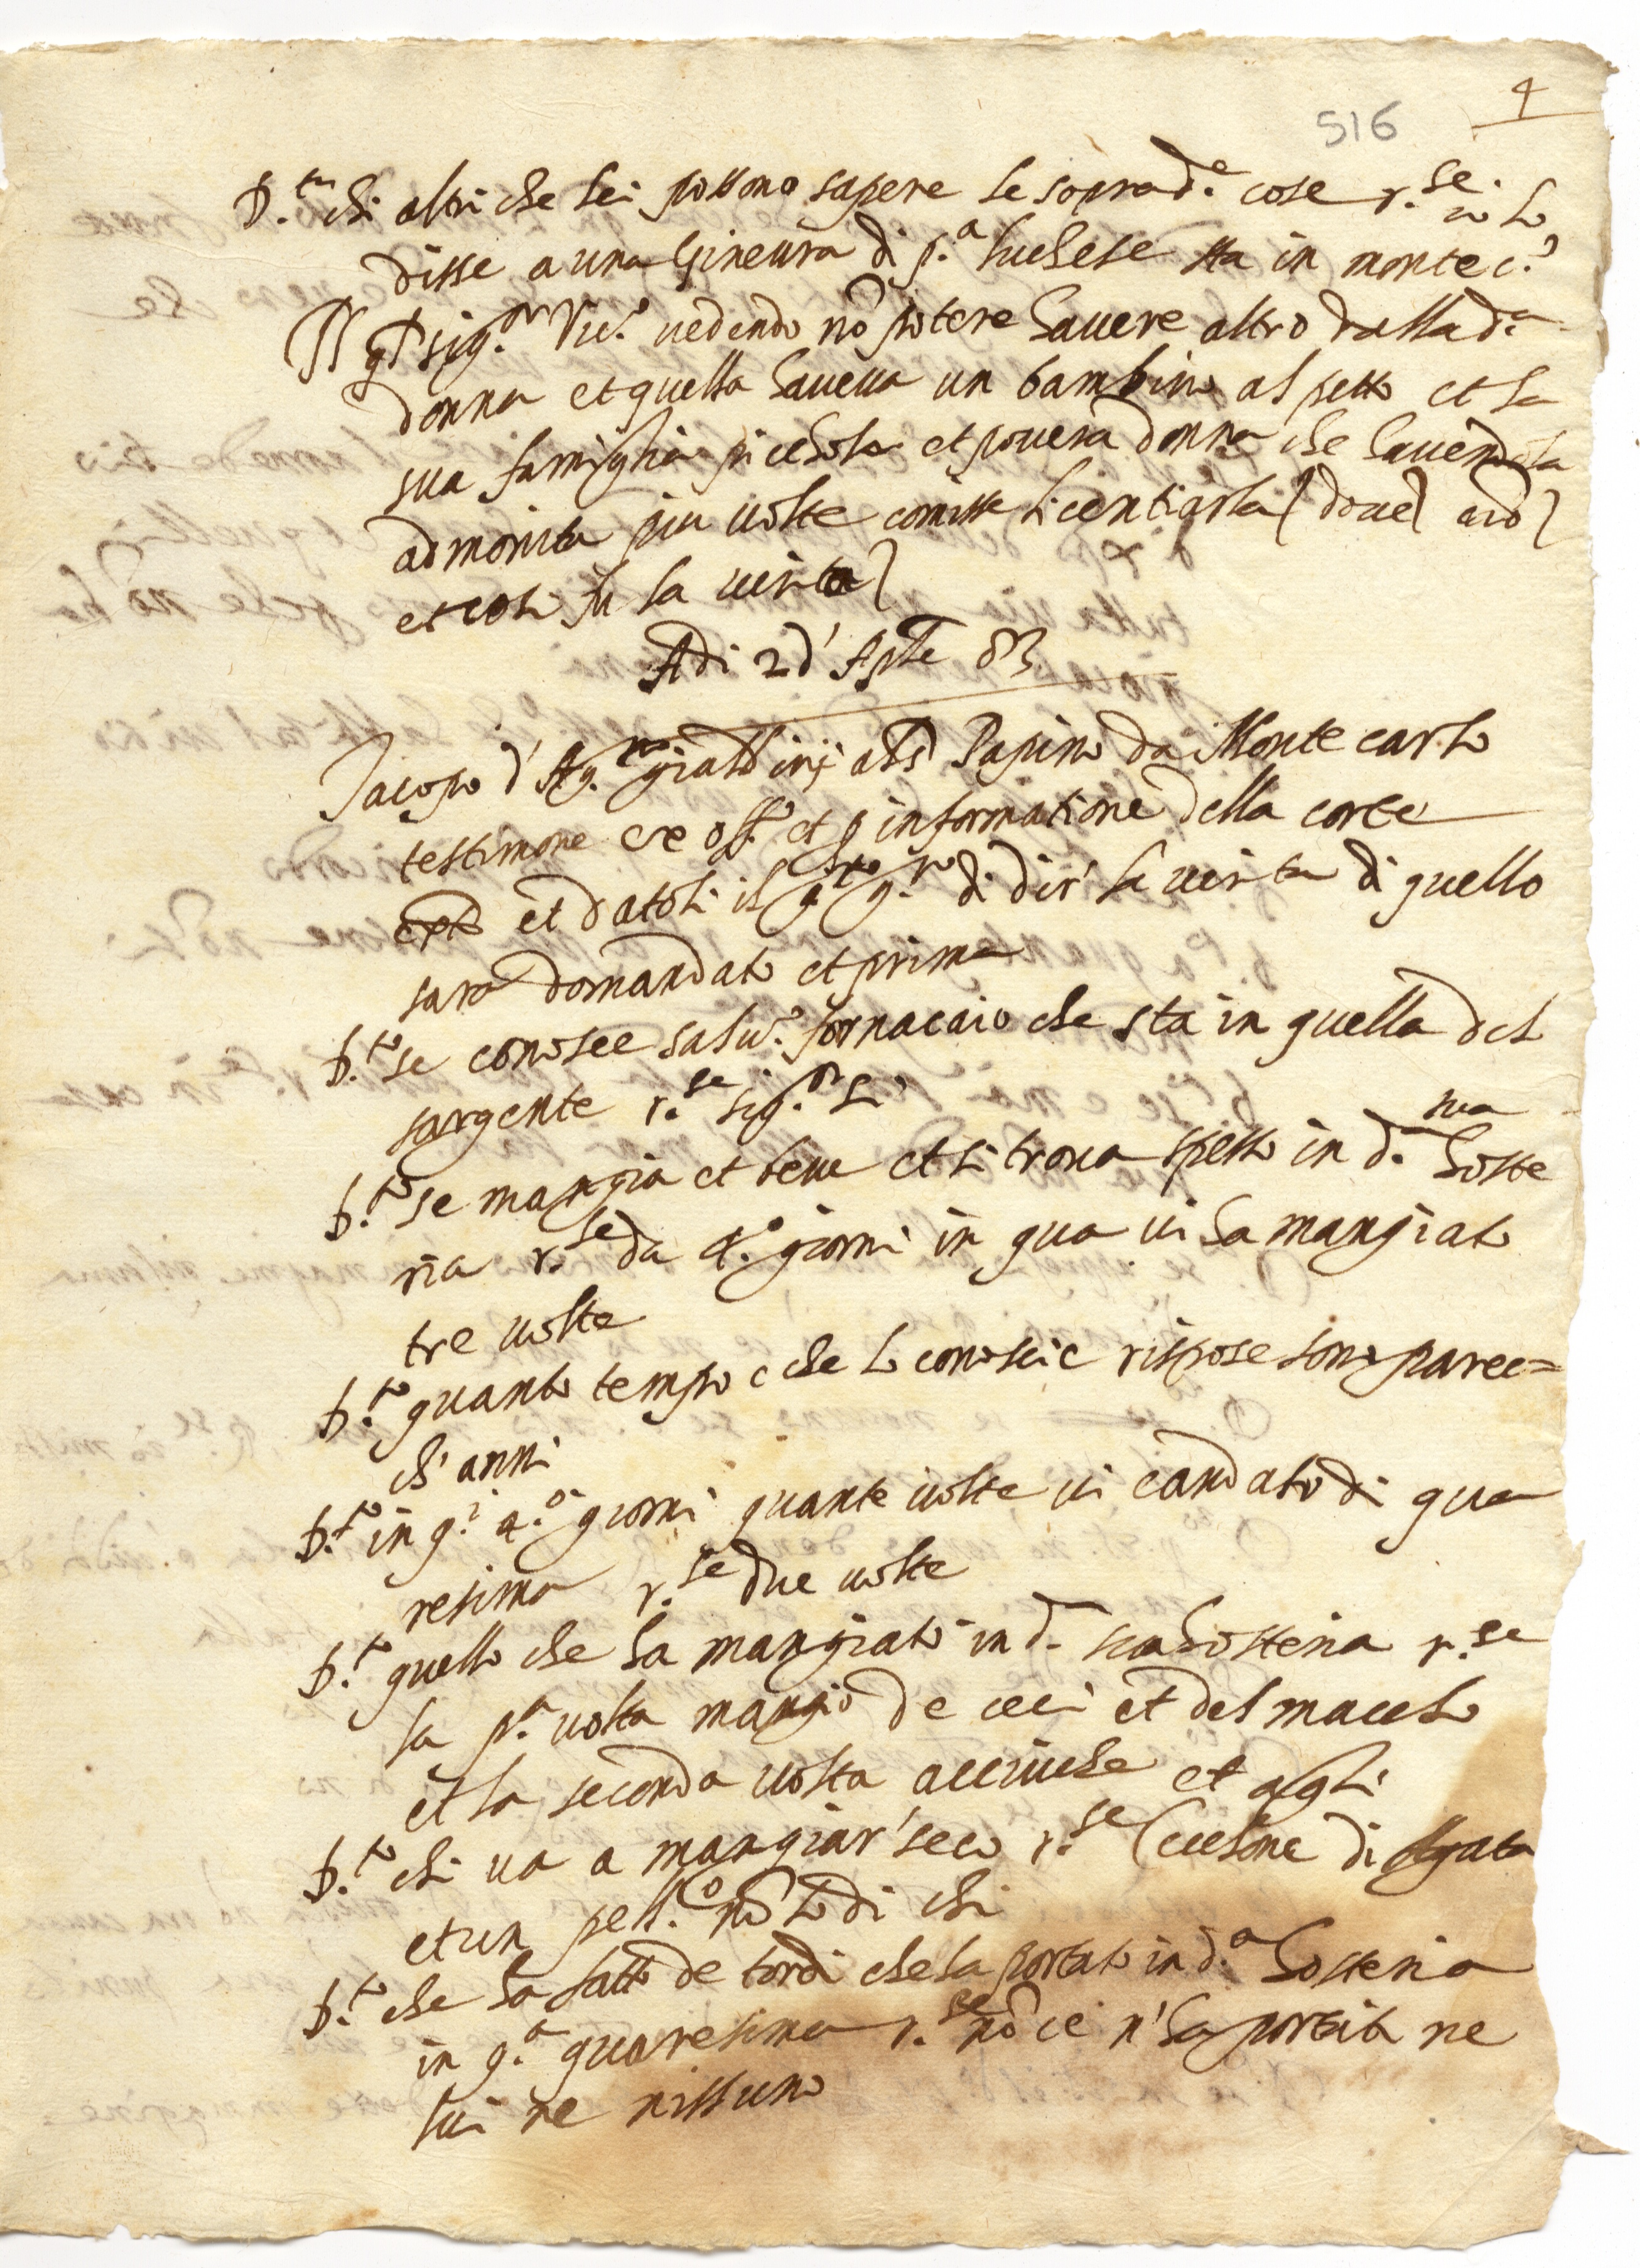 4
516
D.ta chi altri che lei possono sapere le soprad.e cose r.se io lo
disse a una Gineura di p.a luchese sta in monte c.o
Il sig.or Vic.o uedendo nõ potere hauere altro dalla d.a
donna et quella haueua un bambino al petto et la
sua famiglia picchola et pouera donna che hauendola
admonita piu uolte comisse licentiarla
et cosi fu la uerita
Adi 2 d'Aple 83
Jacopo d'Ag.no giald inj als Papino da Monte carlo
testimone ex off.o et p informatione della corte
et datoli il di dir' la uerita di quello
sara domandato et prima
D.to se conosce salu.o fornacaio che sta in quella del
sargente r.se sig.or si
D.to se mangia et beue et si troua spesso in d.a sua hoste
ria r.se da 4.o giorni in qua ui ha mangiato
tre uolte
D.to quanto tempo e che lo conoscie rispose sono parec=
chi anni
D.to in q.i 4.o giorni quante uolte ui e andato di qua
resima r.se due uolte
D.to quello che ha mangiato in d.a sua hosteria r.se
la p.a uolta mangiò de ceci et del macco
et la seconda uolta acciughe et agli
D.to chi ua a mangiar' seco r.se Cecchone di
et un pell.o nõ so di chi
D.to che ha fatto de tordi che ha portato in d.a hosteria
in q.a quaresima r.se nõ ce n'ha portati ne
lui ne nissuno